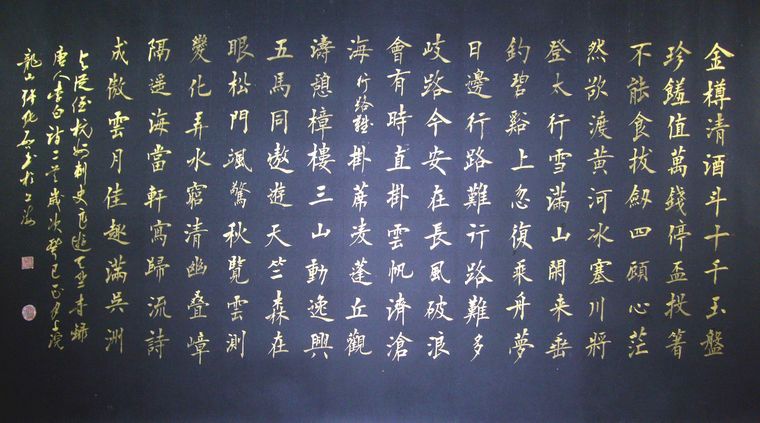 金樽清酒斗十千玉盤
珍饈值萬錢停盃投箸
不能食拔劒四顧心茫
然欲渡黃河冰塞川將
登太行雪滿山閑来垂
釣碧谿上忽復乘舟夢
日邊行路難行路難多
岐路今安在長風破浪
會有時直掛雲帆濟滄
海行路難掛席凌蓬丘觀
濤憩樟樓三山動逸興
五馬同遨遊天竺森在
眼松門颯驚秋覽雲測
變化弄水窮清幽疊嶂
隔遥海當軒寫歸流詩
成傲雲月佳趣滿吳洲
与從侄杭州刺史良遊天竺寺錄
唐人李白詩二首歲次癸巳正月
龍山書於上海